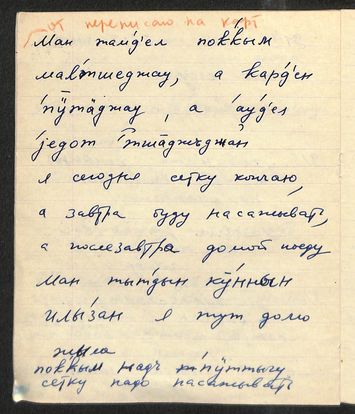 от переписаю на карт
Ман тай́д'ел поккы́м
мавтшеджау, а кард'е́н
п́ӱтäджау, а ау́д'ел
једот тшäджджан
я сегодня сетку кончаю,
а завтра буду насаживать,
а послезавтра домой поеду
Ман тытдын кӱ́ннын
илы́зан я тут долго
жила
поккы́м надъ п́ӱттыгу
сетку надо насаживать